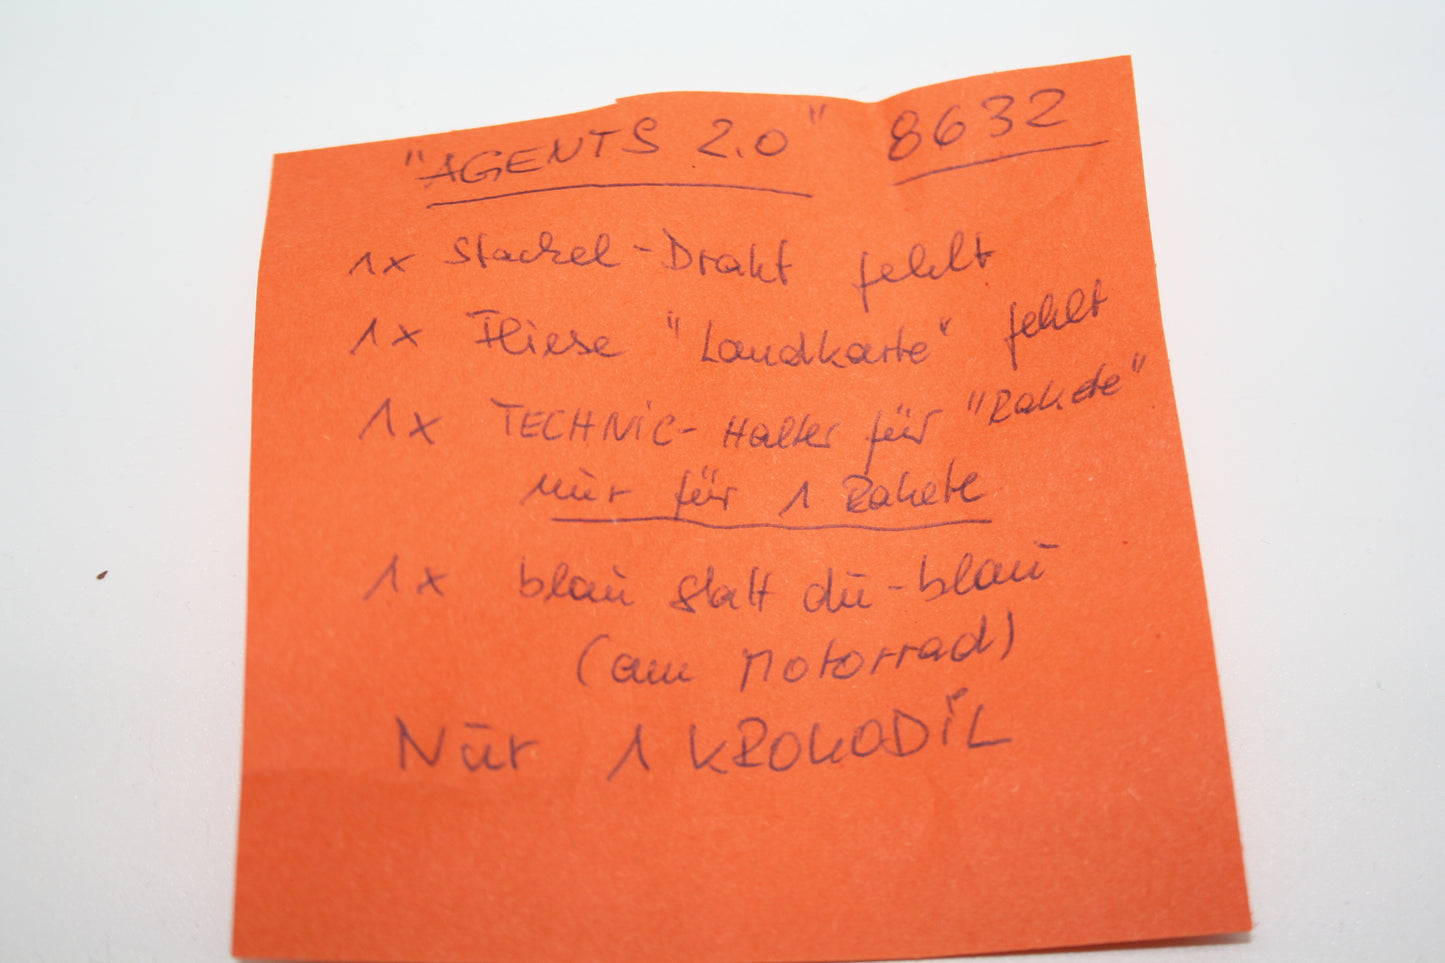 "AGENTS 2.0" 8632
1x Stachel-Draht fehlt
1x Fliese "Landkarte" fehlt
1x TECHNIC-Halter für "Rakete"
nur für 1 Rakete
1x blau statt du-blau
(am Motorrad)
Nur 1 KROKODIL